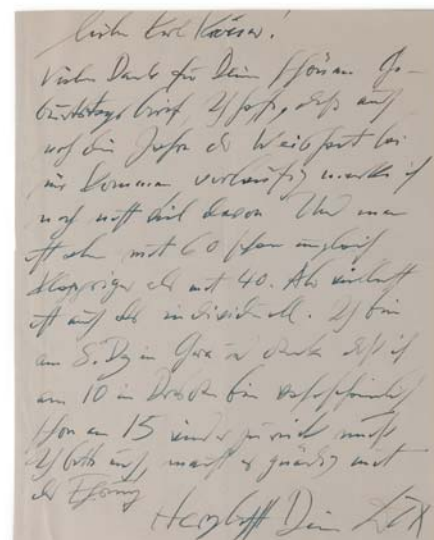 Lieber Karl Kröner!
Vielen Dank für Dein schönen Ge-
burtstagsbrief. Ich hoffe, daß auch
noch die Jahre der Weisheit bei
mir kommen vorläufig merke ich
noch nicht viel davon. Und man
ist eben mit 60 schon ungleich
klappriger als mit 40. Aber vielleicht
ist auch das individuell. Ich bin
am 8. Dez in Gera und denke daß ich
am 10 in Dresden bin wahrscheinlich
schon am 15 wieder zurück muß
Ich bitte euch, macht es gnädig mit
der Ehrung
Herzlichst Dein DIX